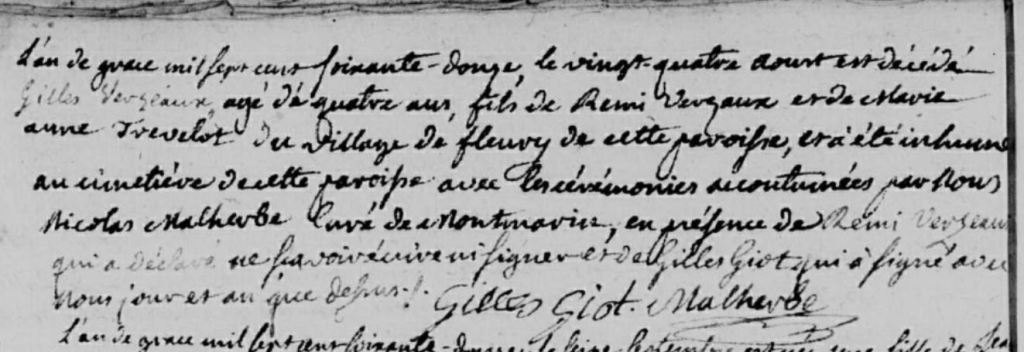 L'an de grace mil sept cent soixante-douze, le vingt-quatre aoust est décédé
Gilles Vergeaux, agé de quatre ans, fils de Remi Vergaux et de Marie
anne Trevelot du village de fleury de cette paroisse, et à été inhumé
au cimetiére de cette paroisse avec les cérémonies accoutumées par Nous
Nicolas Malherbe Curé de Montmarin, en présence de Rémi Vergeaux
qui a déclaré ne sçavoir écrire ni signer et de Gilles Giot qui à signé avec
Nous jour et an que dessus.
Gilles Giot. Malherbe
L'an de grace mil sept cent soixante-douze, le seize Septembre est une fille de